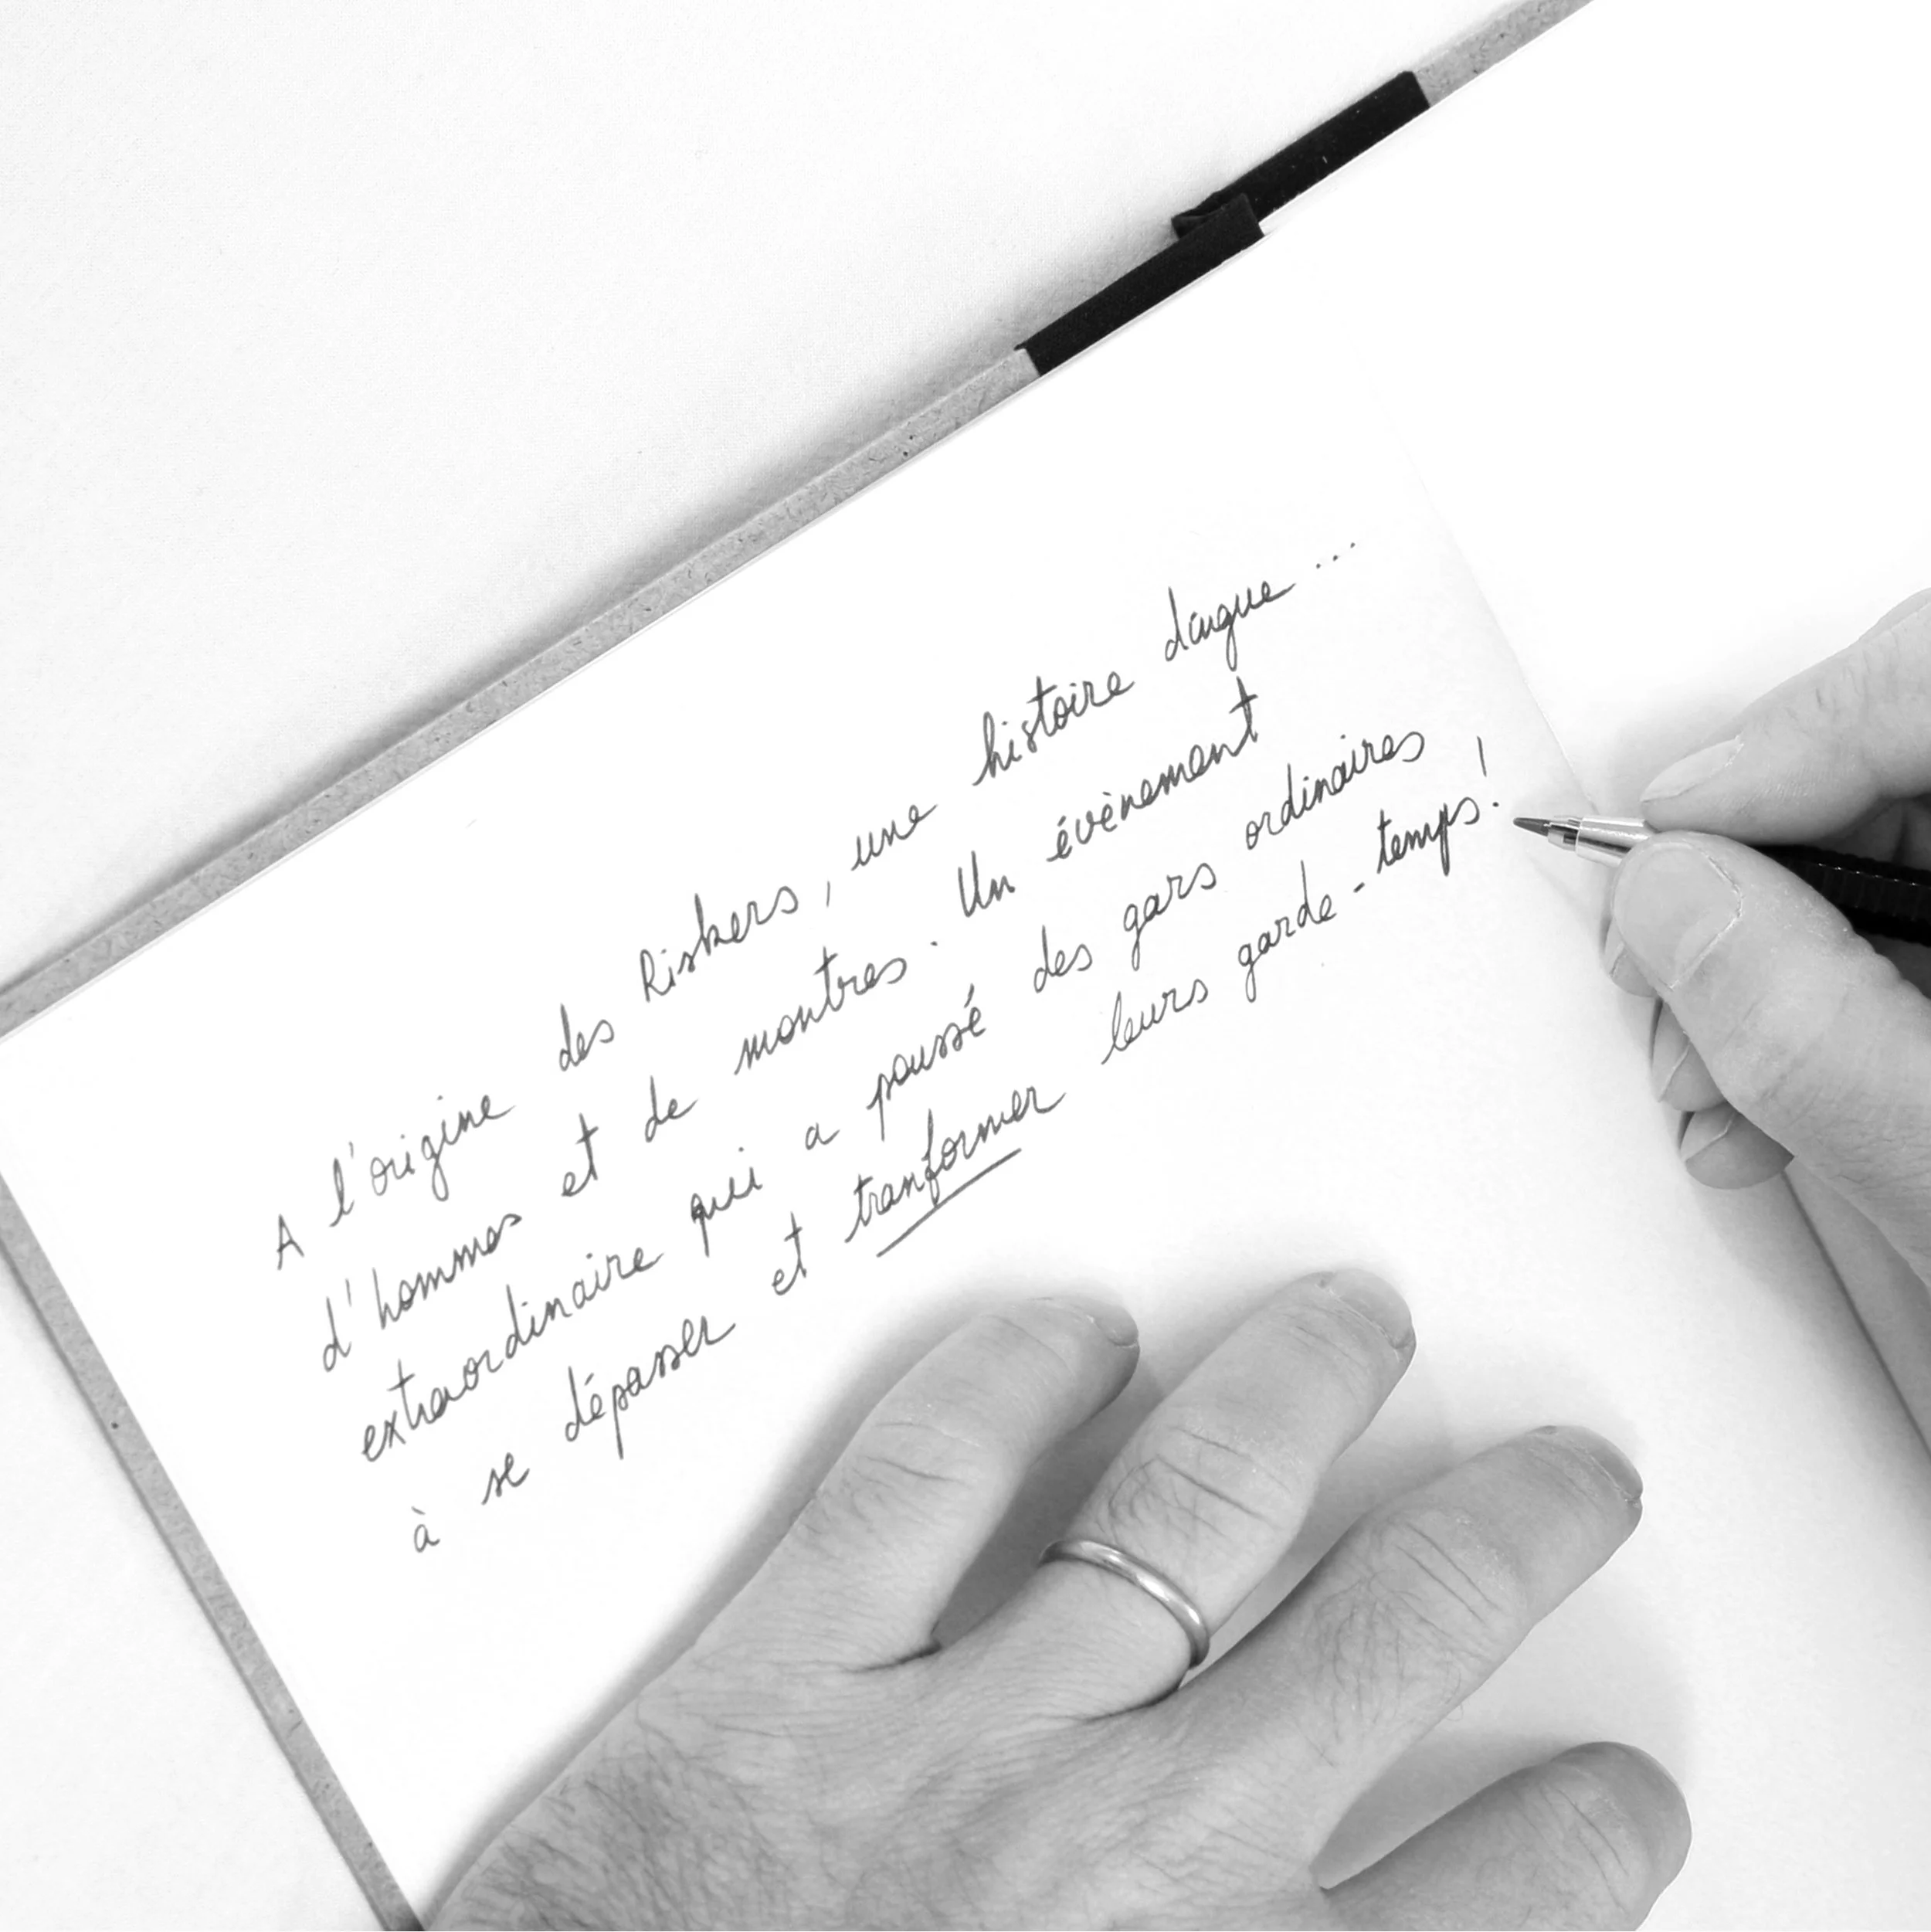 A l'origine des Riskers, une histoire dingue...
d'hommes et de montres. Un évènement
extraordinaire qui a poussé des gars ordinaires
à se dépasser et tranformer leurs garde-temps!